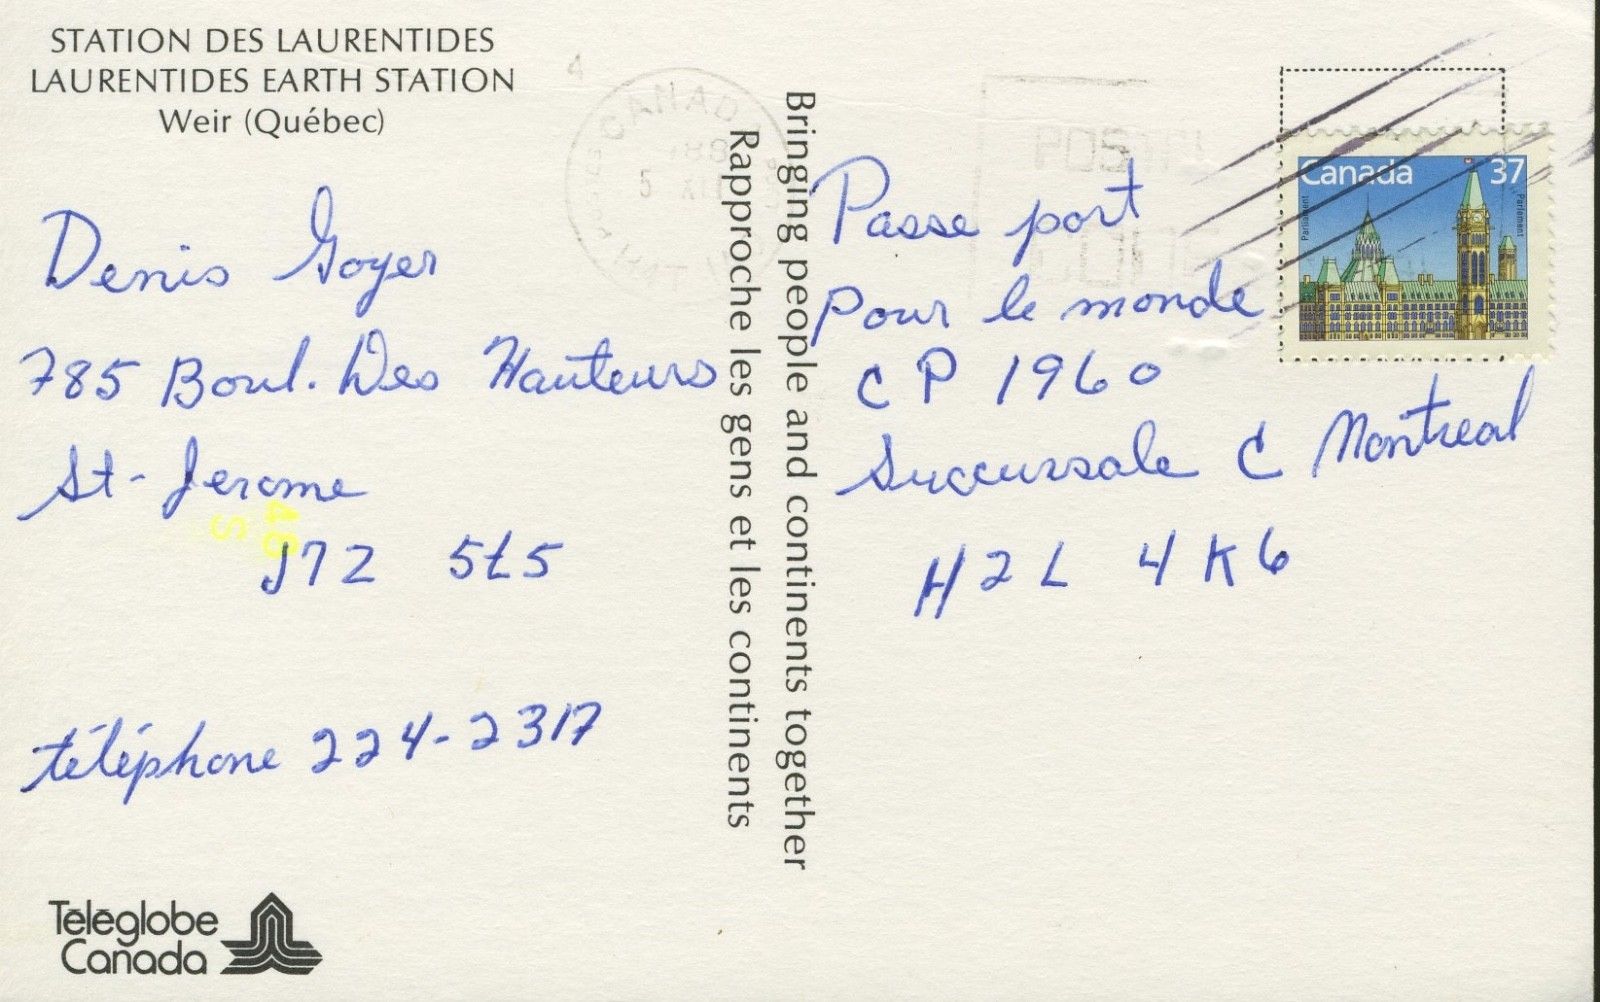 STATION DES LAURENTIDES
LAURENTIDES EARTH STATION
Weir (Québec)
Denis Goyer
785 Boul. Des Hauteurs
St-Jerome
J7Z 5L5
téléphone 224-2317
Téléglobe
Canada
Bringing people and continents together
Rapproche les gens et les continents
CANADA
POSTAL
CODE
Canada 37
Parliament
Parlement
Passe port
Pour le monde
C P 1960
Succursale C Montreal
H2L 4K6
46
S